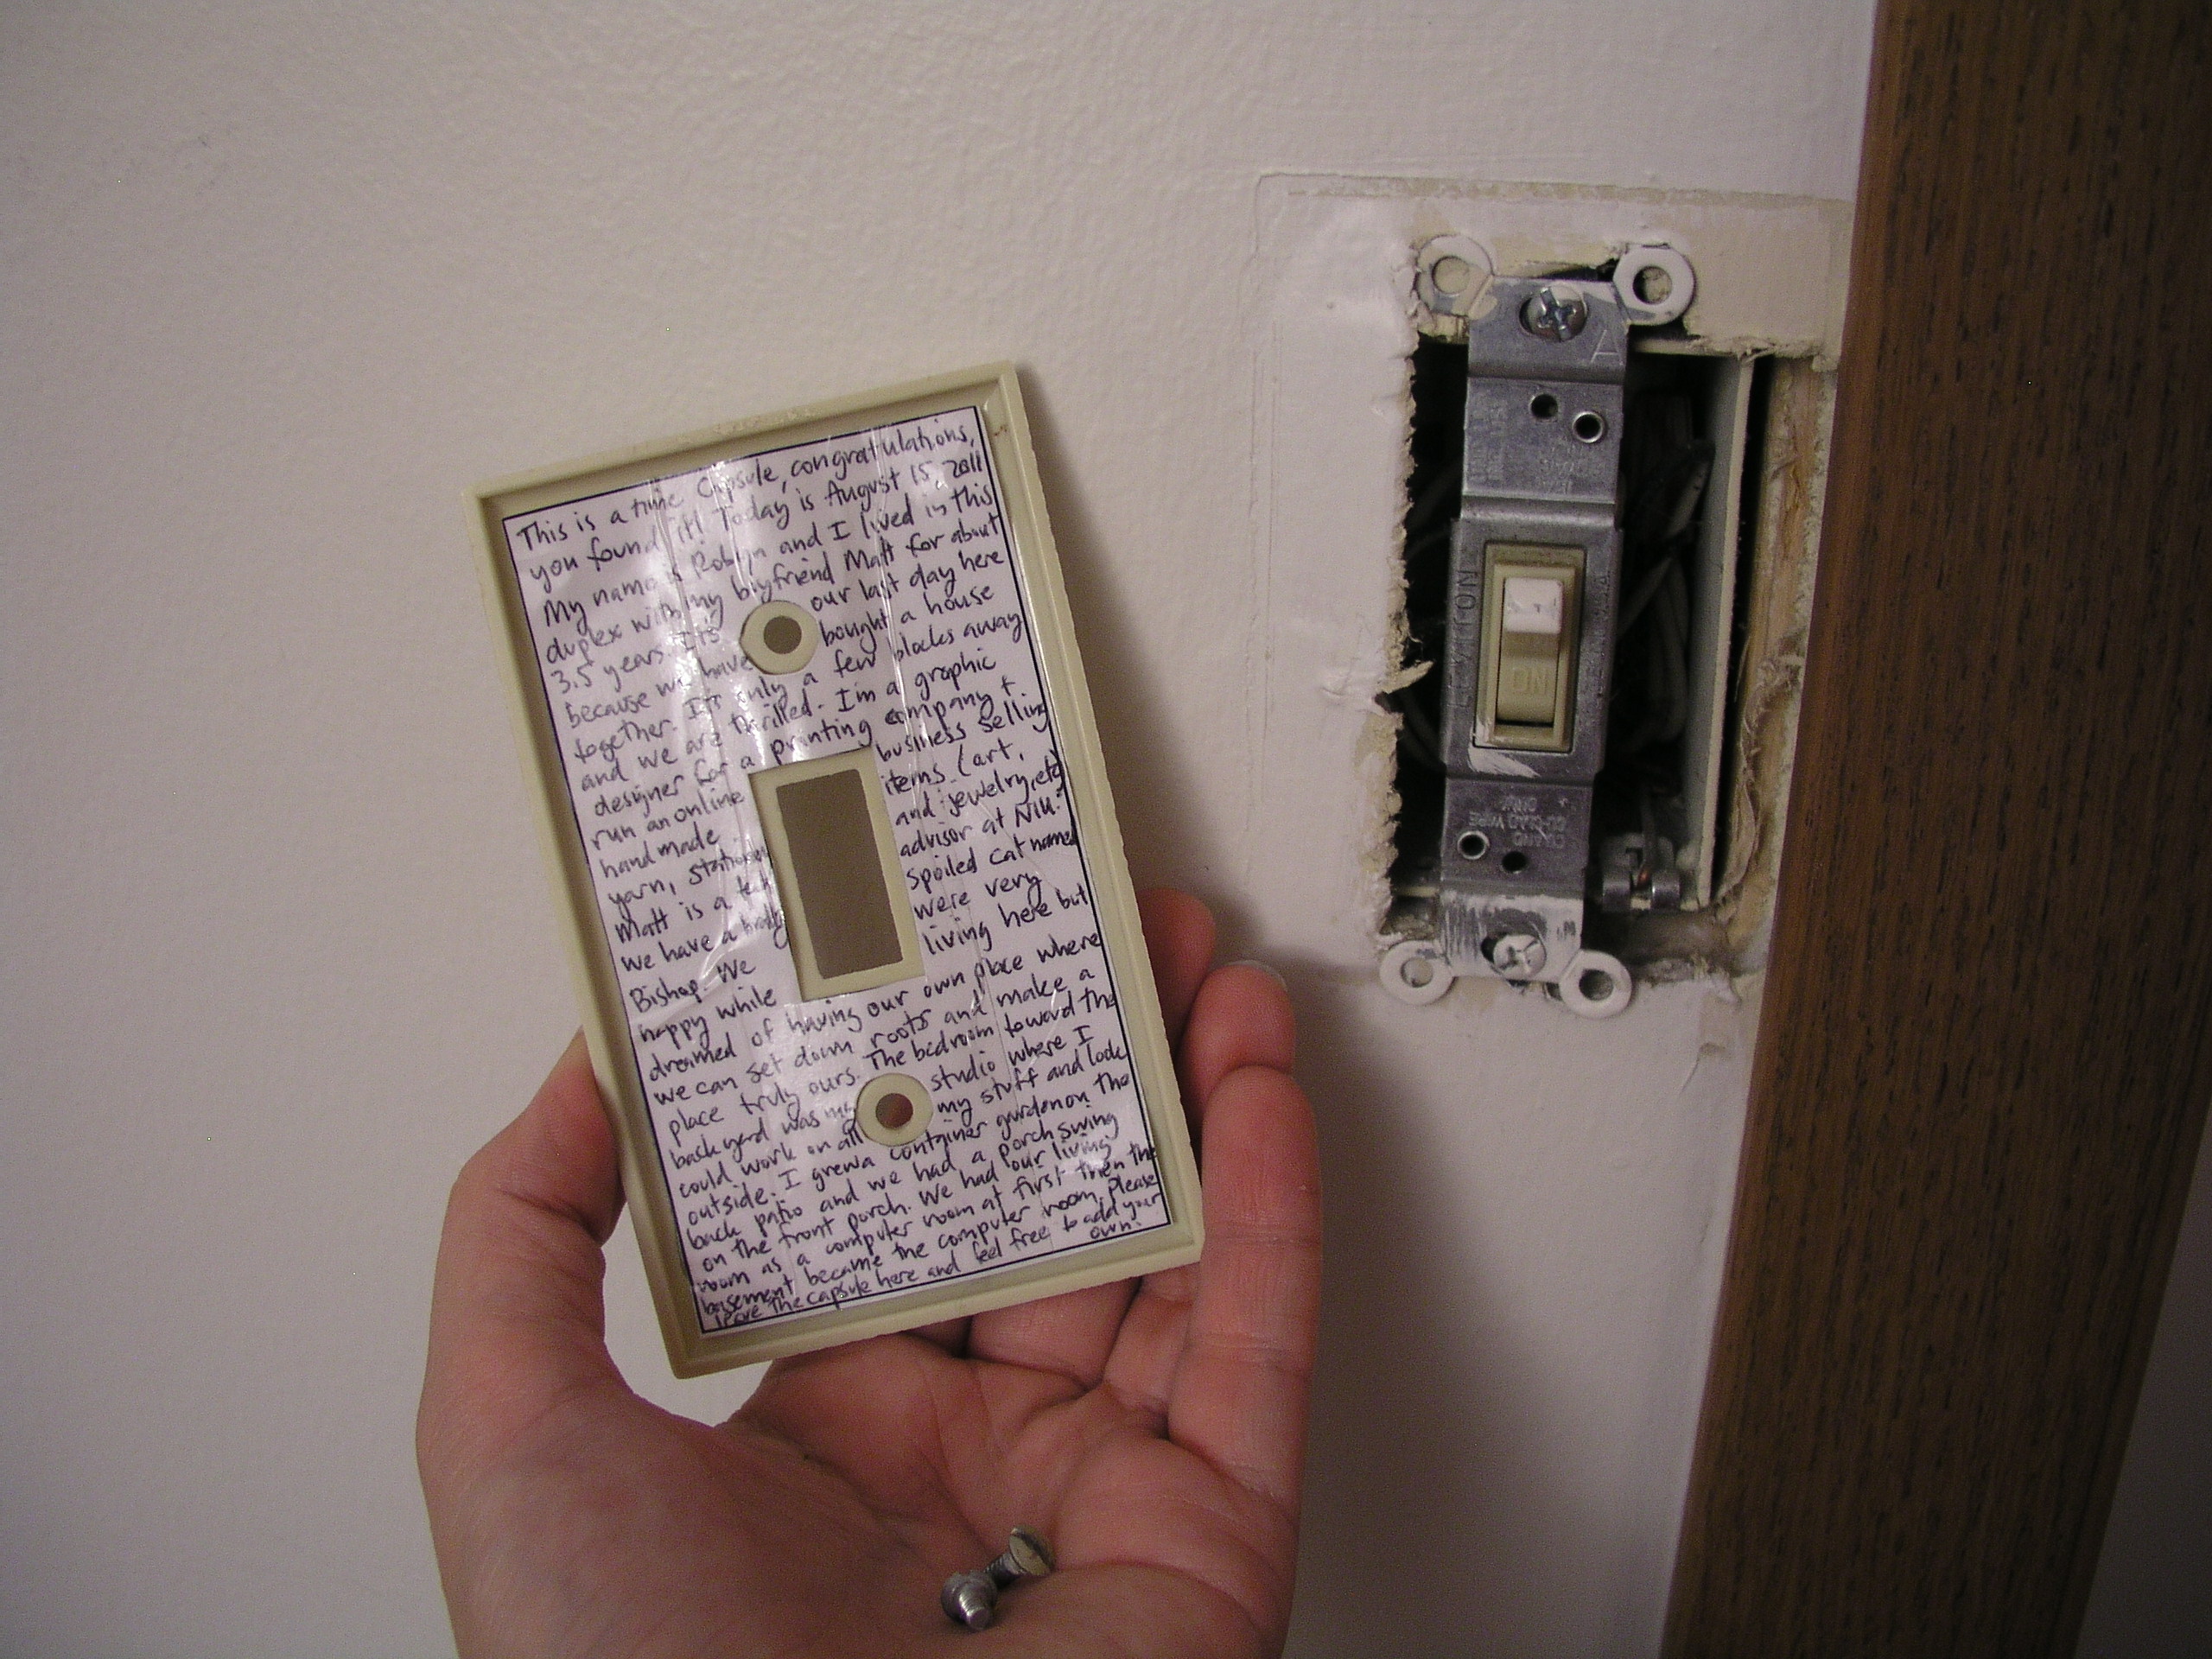 This is a time capsule, congratulations,
you found it! Today is August 15, 2011
My name is Robyn and I lived in this
duplex with my boyfriend Matt for about
3.5 years. It's our last day here
because we have bought a house
together. It's only a few blocks away
and we are thrilled. I'm a graphic
designer for a printing company +
run an online business selling
handmade items (art,
yarn, stationery and jewelry, etc)
Matt is a tech advisor at NIU.
We have a bratty spoiled cat named
Bishop. We were very
happy while living here but
dreamed of having our own place where
we can set down roots and make a
place truly ours. The bedroom toward the
back yard was my studio where I
could work on all my stuff and look
outside. I grew a container garden on the
back patio and we had a porch swing
on the front porch. We had our living
room as a computer room at first then the
basement became the computer room. Please
leave the capsule here and feel free to add your
own.
A
LEVITON
ON